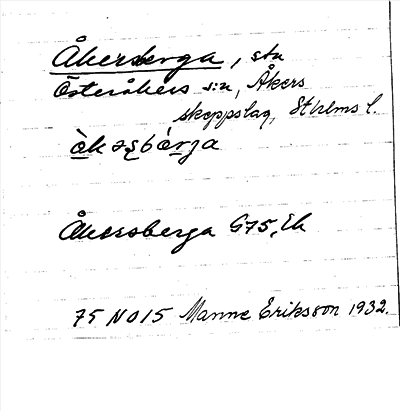 Åkersberga, stn
Österåkers s:n, Åkers
skeppslag, Sthlms l.
Åkersberga G75, Ek
75 NO 15 Manne Eriksson 1932.